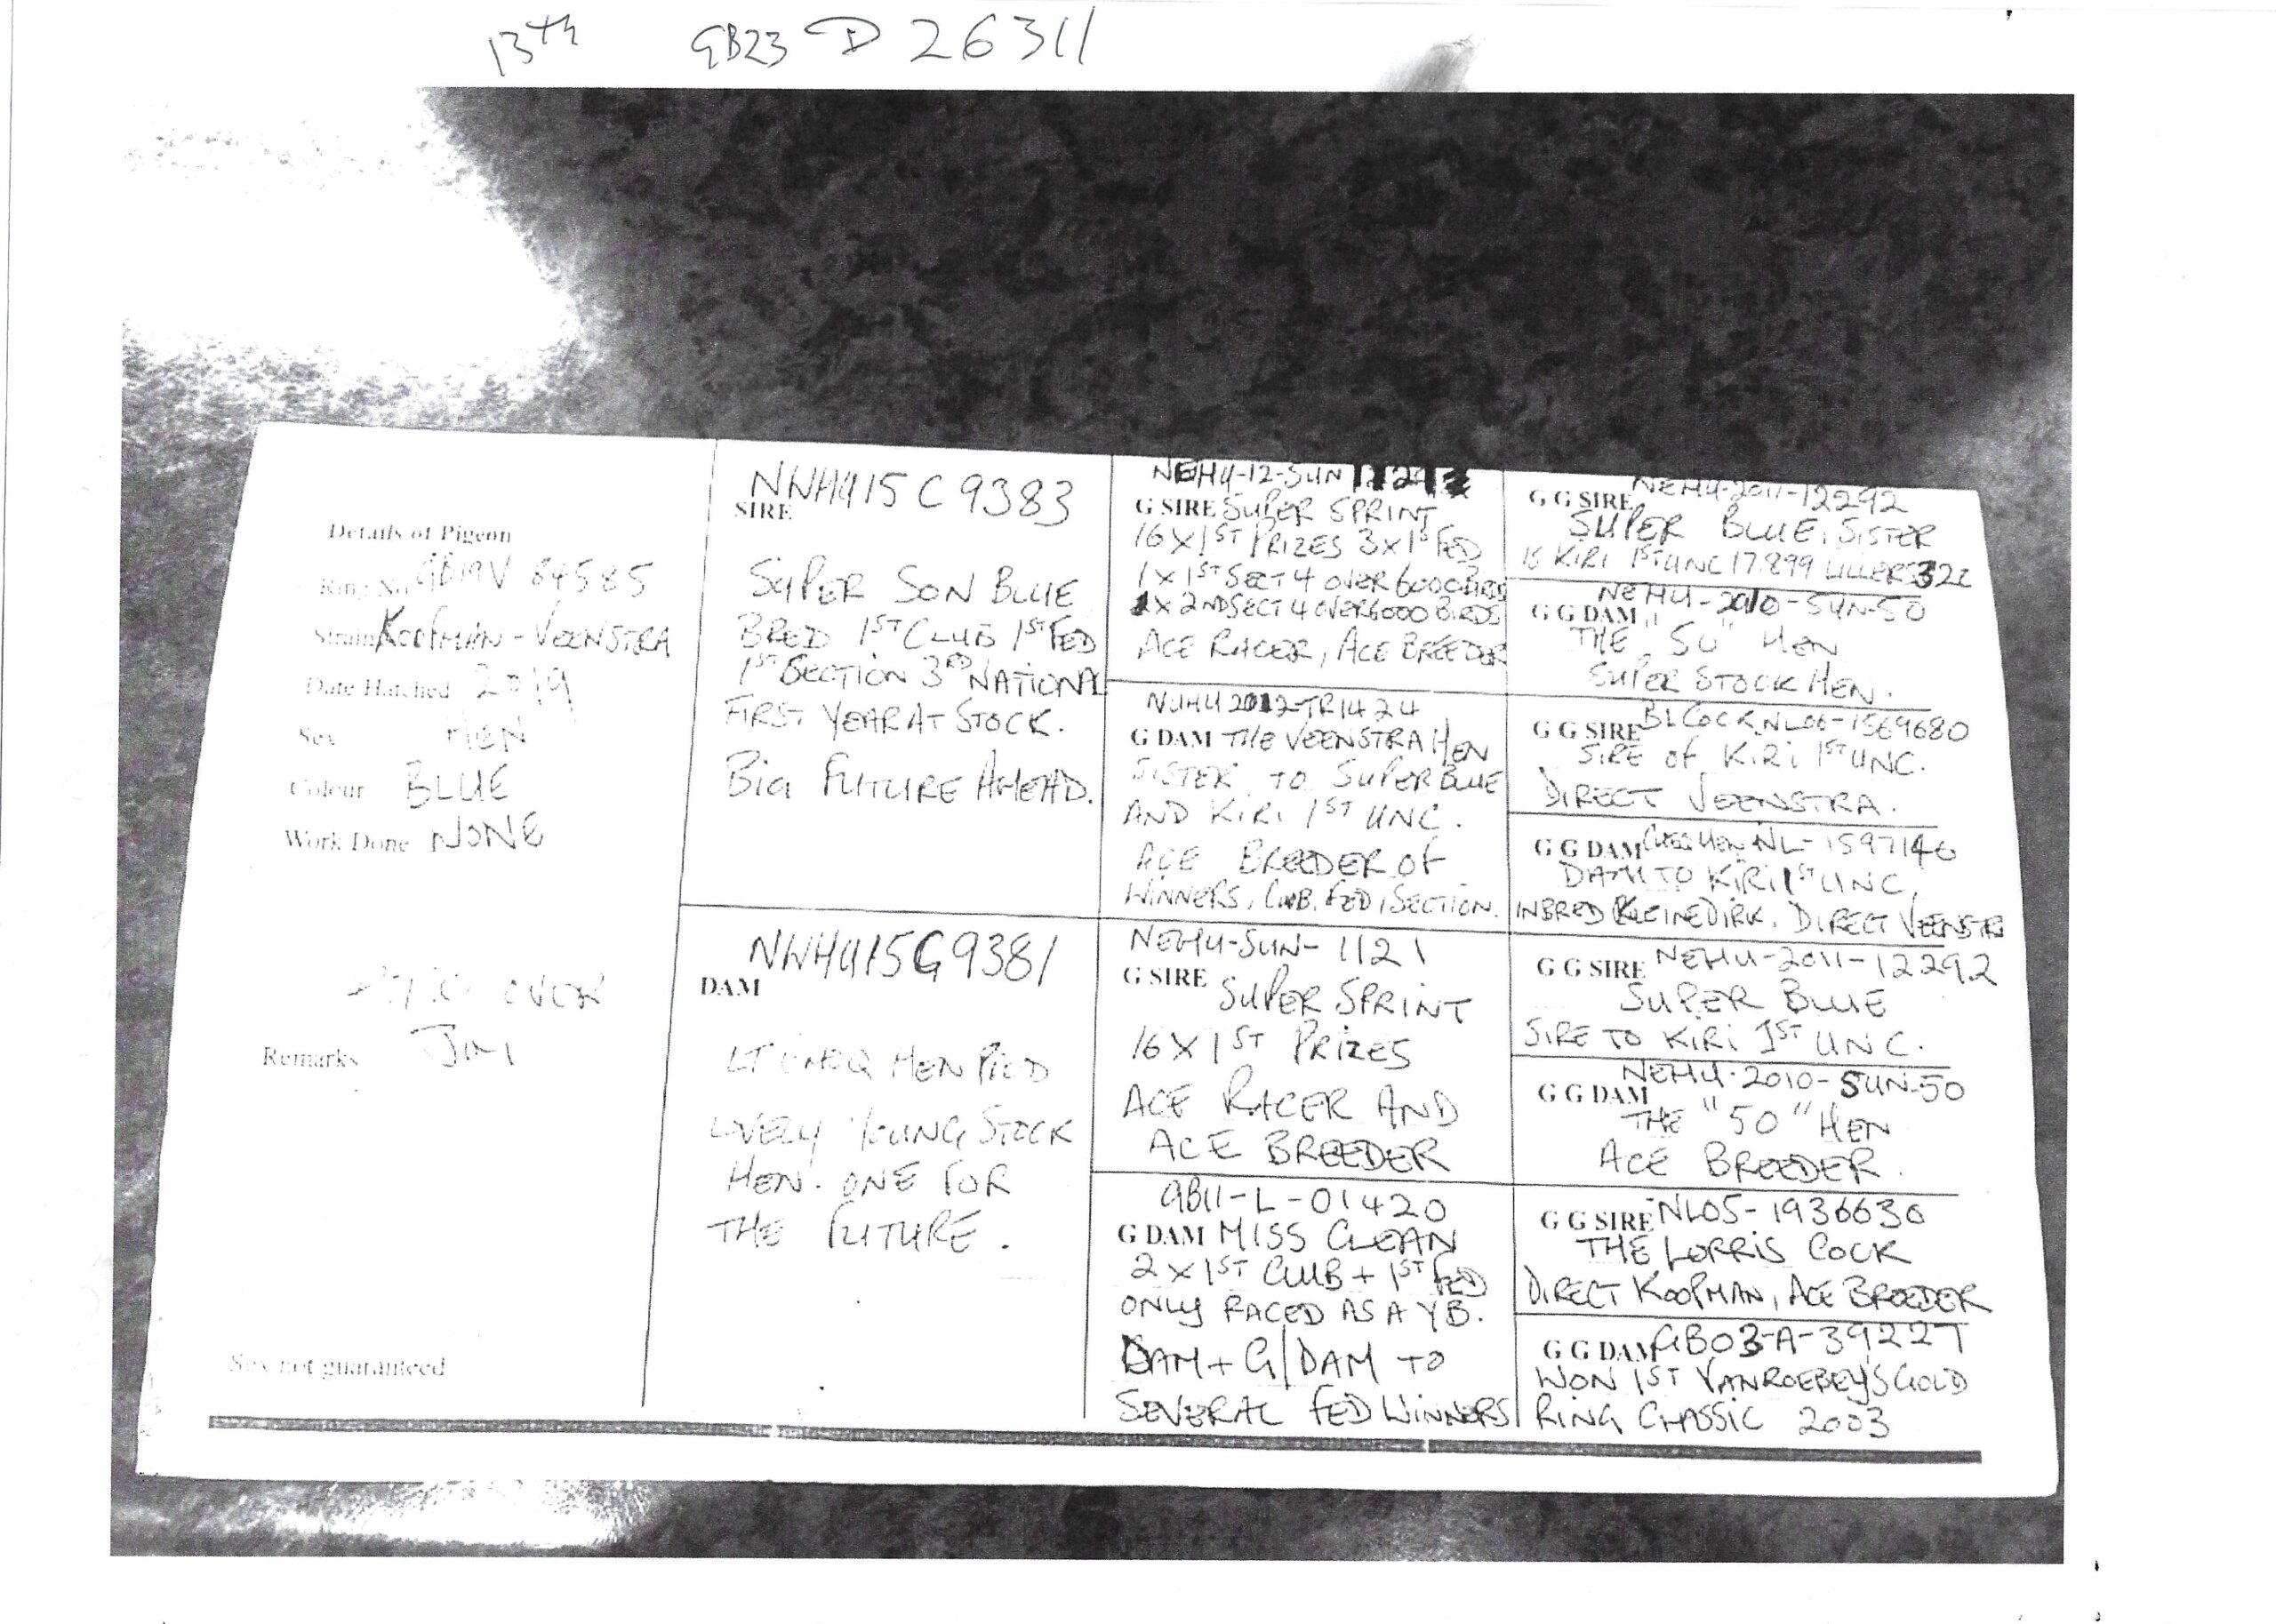 13th GB23 D 26311
Details of Pigeon
Ring No GB19V 84585
Strain KOOPMAN - VEENSTRA
Date Hatched 2019
Sex HEN
Colour BLUE
Work Done NONE
OVER
Remarks JIM
Sex not guaranteed
NWHU15C9383
SIRE
SUPER SON BLUE
BRED 1ST CLUB 1ST FED
1ST SECTION 3RD NATIONAL
FIRST YEAR AT STOCK.
BIG FUTURE AHEAD.
NWHU15G9381
DAM
LT CHEQ HEN PIED
LOVELY YOUNG STOCK
HEN. ONE FOR
THE FUTURE.
NEHU-12-SUN
G SIRE SUPER SPRINT
16 X 1ST PRIZES 3 X 1ST FED
1 X 1ST SECT 4 OVER 6000 BIRDS
1 X 2ND SECT 4 OVER 6000 BIRDS
ACE RACER, ACE BREEDER
NUHU2012-TR1424
G DAM THE VEENSTRA HEN
SISTER TO SUPER BLUE
AND KIRI 1ST UNC.
ACE BREEDER OF
WINNERS, CLUB, FED, SECTION.
NEHU-SUN-1121
G SIRE SUPER SPRINT
16 X 1ST PRIZES
ACE RACER AND
ACE BREEDER
GB11-L-01420
G DAM MISS CLEAN
2 X 1ST CLUB + 1ST FED
ONLY RACED AS A YB.
DAM + G/DAM TO
SEVERAL FED WINNERS
NEHU-2011-12292
G G SIRE SUPER BLUE, SISTER
IS KIRI 1ST UNC 17.899 LILLERS 322
NEHU-2010-SUN-50
G G DAM THE "50" HEN
SUPER STOCK HEN.
G G SIRE BL COCK NL06-1569680
SIRE OF KIRI 1ST UNC.
DIRECT VEENSTRA.
G G DAM CHEQ HEN NL-1597140
DAM TO KIRI 1ST UNC,
INBRED KLEINE DIRK. DIRECT VEENSTRA
G G SIRE NEHU-2011-12292
SUPER BLUE
SIRE TO KIRI 1ST UNC.
NEHU-2010-SUN-50
G G DAM THE "50" HEN
ACE BREEDER.
G G SIRE NL05-1936630
THE LORRIS COCK
DIRECT KOOPMAN, ACE BREEDER
G G DAM GB03-A-39227
WON 1ST VANROEBEY'S GOLD
RING CLASSIC 2003